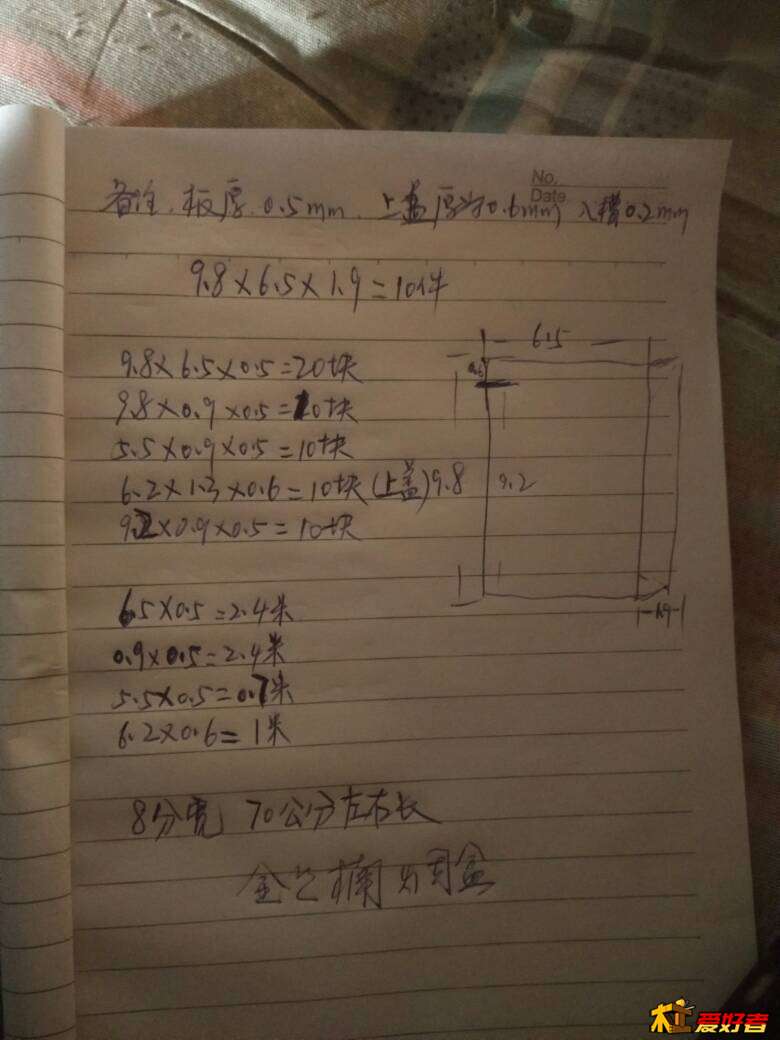 No.
Date
备注、板厚.0.5mm、上盖厚为0.6mm, 入槽0.2mm
9.8×6.5×1.9=10件
9.8×6.5×0.5=20块
9.8×0.9×0.5=10块
5.5×0.9×0.5=10块
6.2×1.3×0.6=10块(上盖)
9.2×0.9×0.5=10块
6.5
9.8
9.2
1.9
6.5×0.5=2.4米
0.9×0.5=2.4米
5.5×0.5=0.7米
6.2×0.6=1米
8分宽 70公分左右长
金丝楠 烟盒
木工爱好者